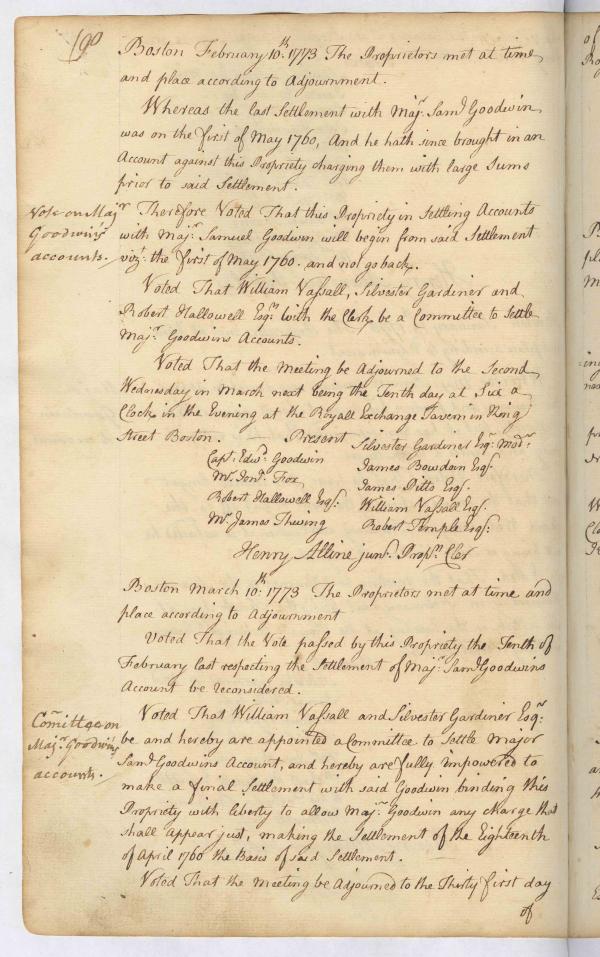 190
Boston February 10th. 1773 The Proprietors met at time
and place according to Adjournment.
Whereas the last Settlement with Majr. Saml. Goodwin
was on the first of May 1760, And he hath since brought in an
Account against this Propriety charging them with large Sums
prior to said Settlement.
Vote on Majr
Goodwin's
accounts.
Therefore Voted That this Propriety in Settling Accounts
with Majr. Samuel Goodwin will begin from said Settlement
vizt. the first of May 1760. and not go back.
Voted That William Vassall, Silvester Gardiner and
Robert Hallowell Esqrs. with the Clerk be a Committee to Settle
Majr. Goodwins Accounts.
Voted That the Meeting be Adjourned to the Second
Wednesday in March next being the Tenth day at Six a
Clock in the Evening at the Royall Exchange Tavern in King
Street Boston. — Present Silvester Gardiner Esqr. Modr.
Capt. Edwd. Goodwin James Bowdoin Esqr.
Mr. Jont. Fox James Pitts Esqr.
Robert Hallowell Esqr. William Vassall Esqr.
Mr. James Thwing Robert Temple Esqr.
Henry Alline junr. Proprs. Cler
Boston March 10th. 1773 The Proprietors met at time and
place according to Adjournment
Voted That the Vote passed by this Propriety the Tenth of
February last respecting the Settlement of Majr. Saml. Goodwins
Account be reconsidered.
Comittee on
Majr. Goodwins
accounts.
Voted That William Vassall and Silvester Gardiner Esqr.
be and hereby are appointed a Committee to Settle Major
Saml. Goodwins Account, and hereby are fully impowered to
make a final Settlement with said Goodwin binding this
Propriety with liberty to allow Majr. Goodwin any charge that
shall appear just, making the Settlement of the Eighteenth
of April 1760 the Basis of said Settlement.
Voted That the Meeting be Adjourned to the Thirty first day
of